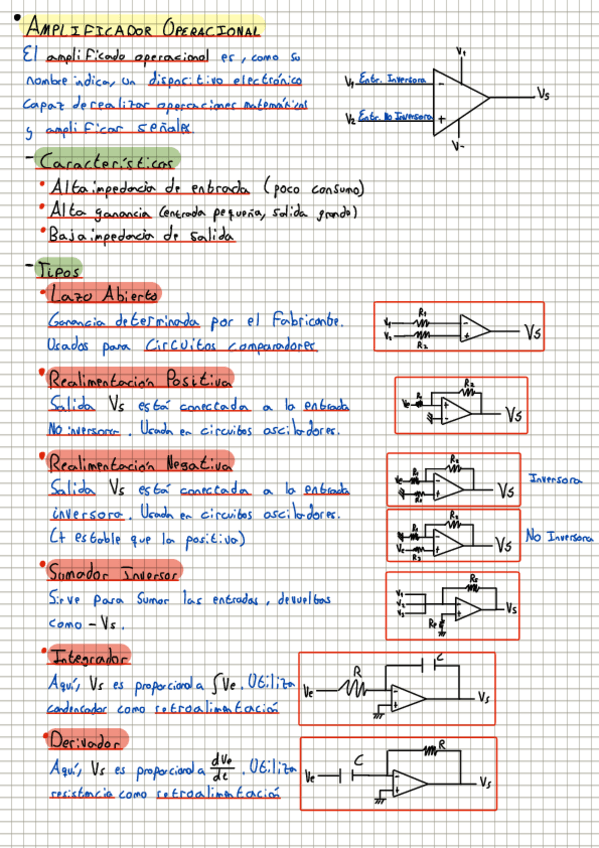 • AMPLIFICADOR OPERACIONAL
El amplificado operacional es, como su
nombre indica, un dispositivo electrónico
capaz de realizar operaciones matemáticas
y amplificar señales
V+
V1 Entr. Inversora
V2 Entr. No Inversora
- +
V-
Vs
- Características
• Alta impedancia de entrada (poco consumo)
• Alta ganancia (entrada pequeña, salida grande)
• Baja impedancia de salida
- Tipos
• Lazo Abierto
Ganancia determinada por el Fabricante.
Usados para circuitos comparadores
V1 R1
V2 R2
Vs
• Realimentación Positiva
Salida Vs está conectada a la entrada
No inversora. Usada en circuitos osciladores.
R2
Ve R1
Vs
• Realimentación Negativa
Salida Vs está conectada a la entrada
inversora. Usada en circuitos osciladores.
(+ estable que la positiva)
R2
Ve
Vs
Inversora
R2
Ve
Vs
No Inversora
• Sumador Inversor
Sirve para sumar las entradas, devueltas
como -Vs.
V1
V2
V3
Vs
• Integrador
Aquí, Vs es proporcional a ∫Ve. Utiliza
condensador como retroalimentación
C
Ve R
Vs
• Derivador
Aquí, Vs es proporcional a dVe/dt. Utiliza
resistencia como retroalimentación
R
Ve C
Vs